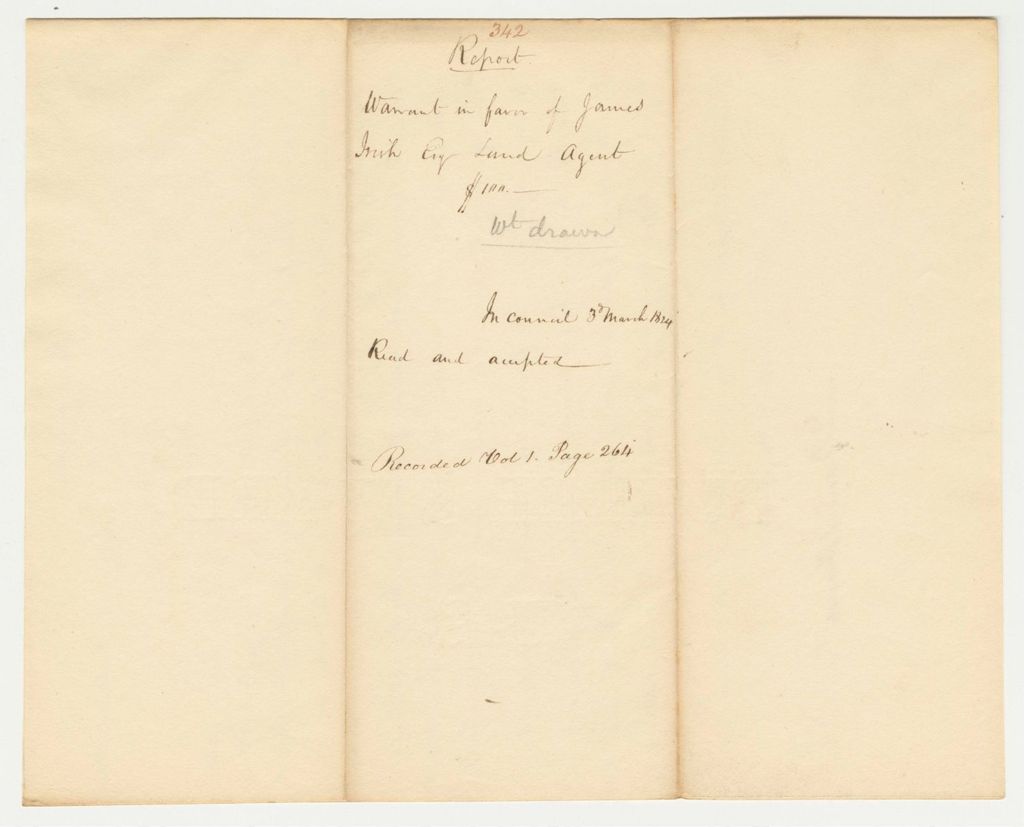 342
Report.
Warrant in favor of James
Irish Esq Land Agent
$100.—
Wt drawn
In council 3d March 1824
Read and accepted
Recorded Vol 1. Page 264